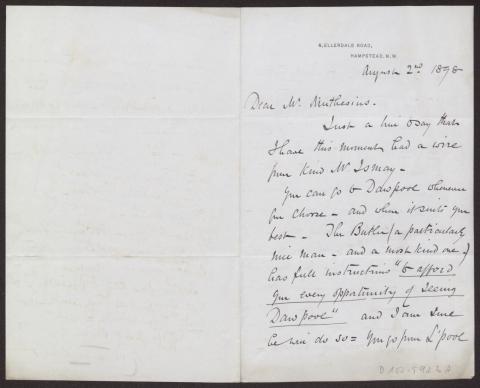 6, ELLERDALE ROAD,
HAMPSTEAD, N.W.
August 2nd 1898
Dear Mr. Muthesius.
Just a line to say that
I have this moment had a wire
from kind Mr Ismay –
You can go to Dawpool whenever
you choose – and when it suits you
best – The Butler (a particularly
nice man – and a most kind one)
has full instructions "to afford
you every opportunity of seeing
Dawpool" and I am sure
he will do so = You go from L'pool